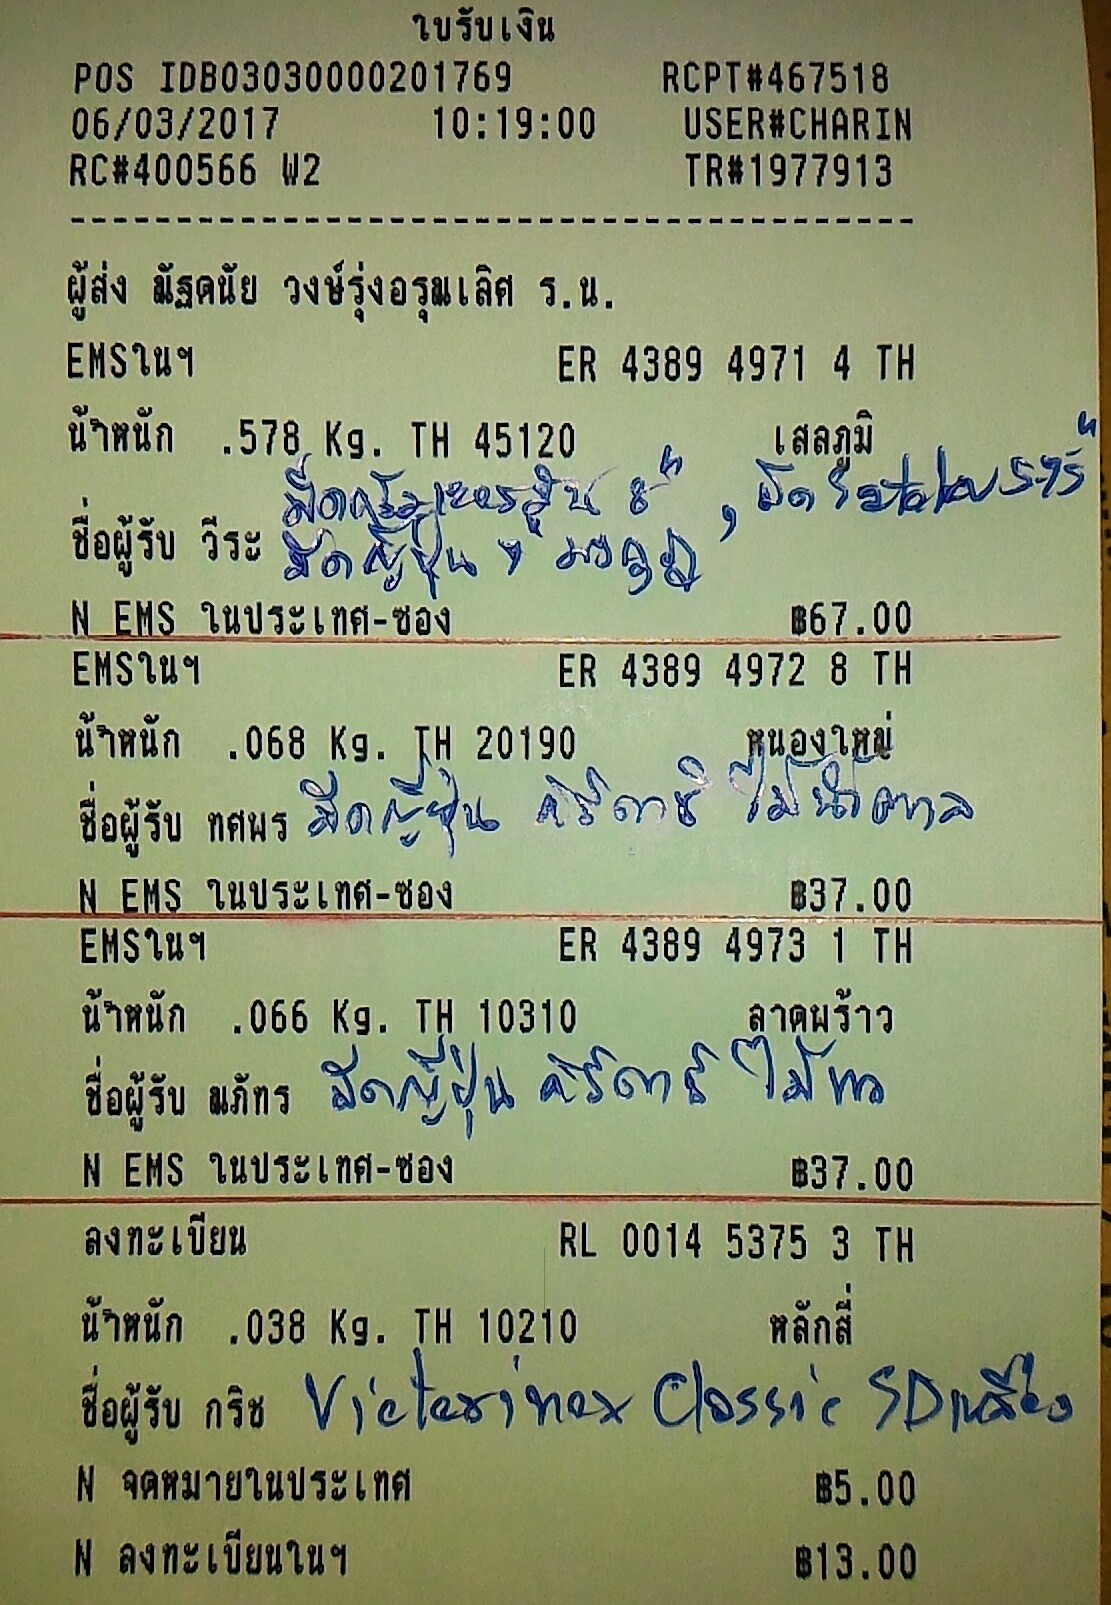 ใบรับเงิน
POS IDB03030000201769 RCPT#467518
06/03/2017 10:19:00 USER#CHARIN
RC#400566 W2 TR#1977913
----------------------------------------
ผู้ส่ง ณัฐดนัย วงษ์รุ่งอรุณเลิศ ร.น.
EMSในฯ ER 4389 4971 4 TH
น้ำหนัก .578 Kg. TH 45120 เสลภูมิ
8" , มีด
ชื่อผู้รับ วีระ มีดญี่ปุ่น
N EMS ในประเทศ-ซอง ฿67.00
EMSในฯ ER 4389 4972 8 TH
น้ำหนัก .068 Kg. TH 20190 หนองใหญ่
ชื่อผู้รับ ทศพร มีดญี่ปุ่น คิริดาชิ ไม้น้ำตาล
N EMS ในประเทศ-ซอง ฿37.00
EMSในฯ ER 4389 4973 1 TH
น้ำหนัก .066 Kg. TH 10310 ลาดพร้าว
ชื่อผู้รับ ณภัทร มีดญี่ปุ่น คิริดาชิ
N EMS ในประเทศ-ซอง ฿37.00
ลงทะเบียน RL 0014 5375 3 TH
น้ำหนัก .038 Kg. TH 10210 หลักสี่
ชื่อผู้รับ กริช Victorinox Classic SD เหลือง
N จดหมายในประเทศ ฿5.00
N ลงทะเบียนในฯ ฿13.00